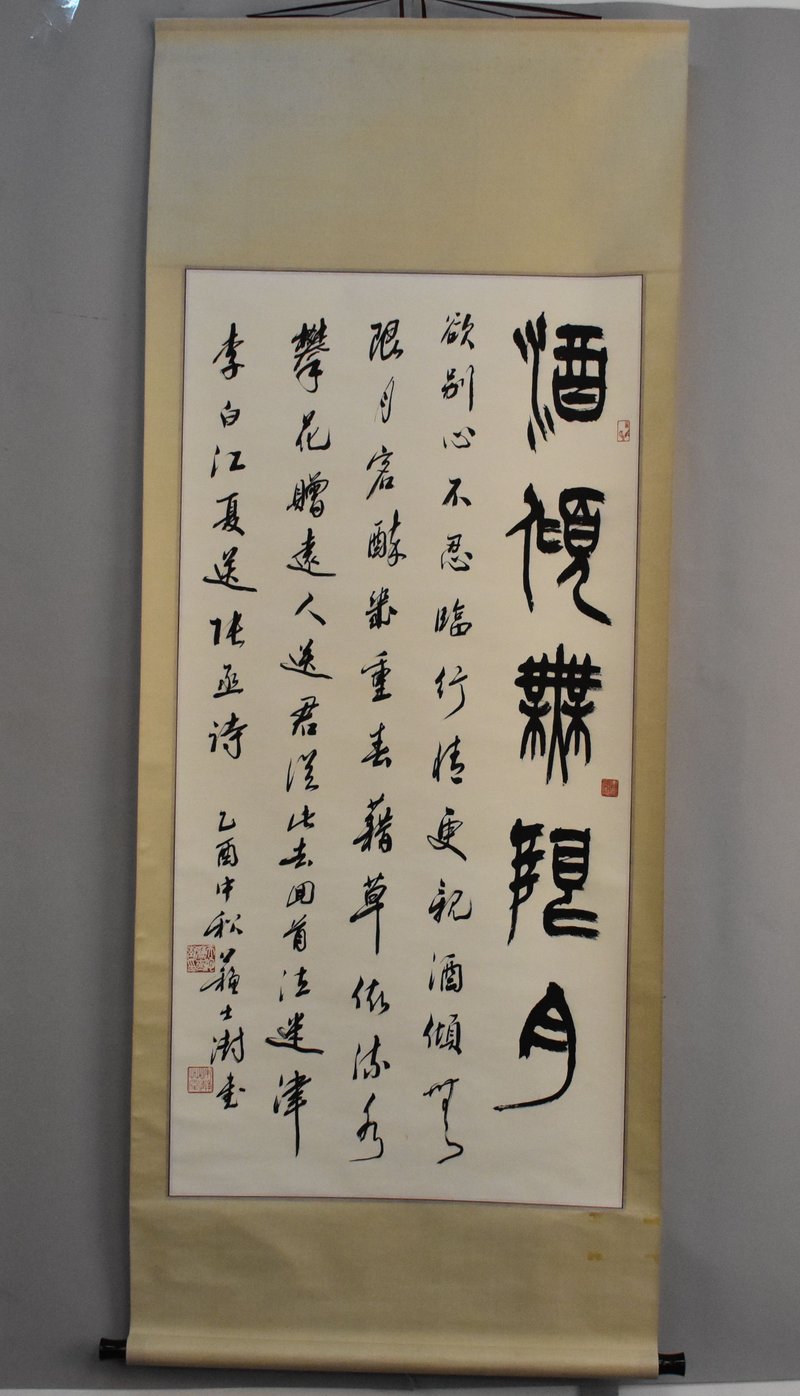 酒傾無限月
欲別心不忍臨行情更親酒傾無
限月客醉幾重春藉草依流水
攀花贈遠人送君從此去囬首泣迷津
李白江夏送張丞詩 乙酉中秋蘇士澍書